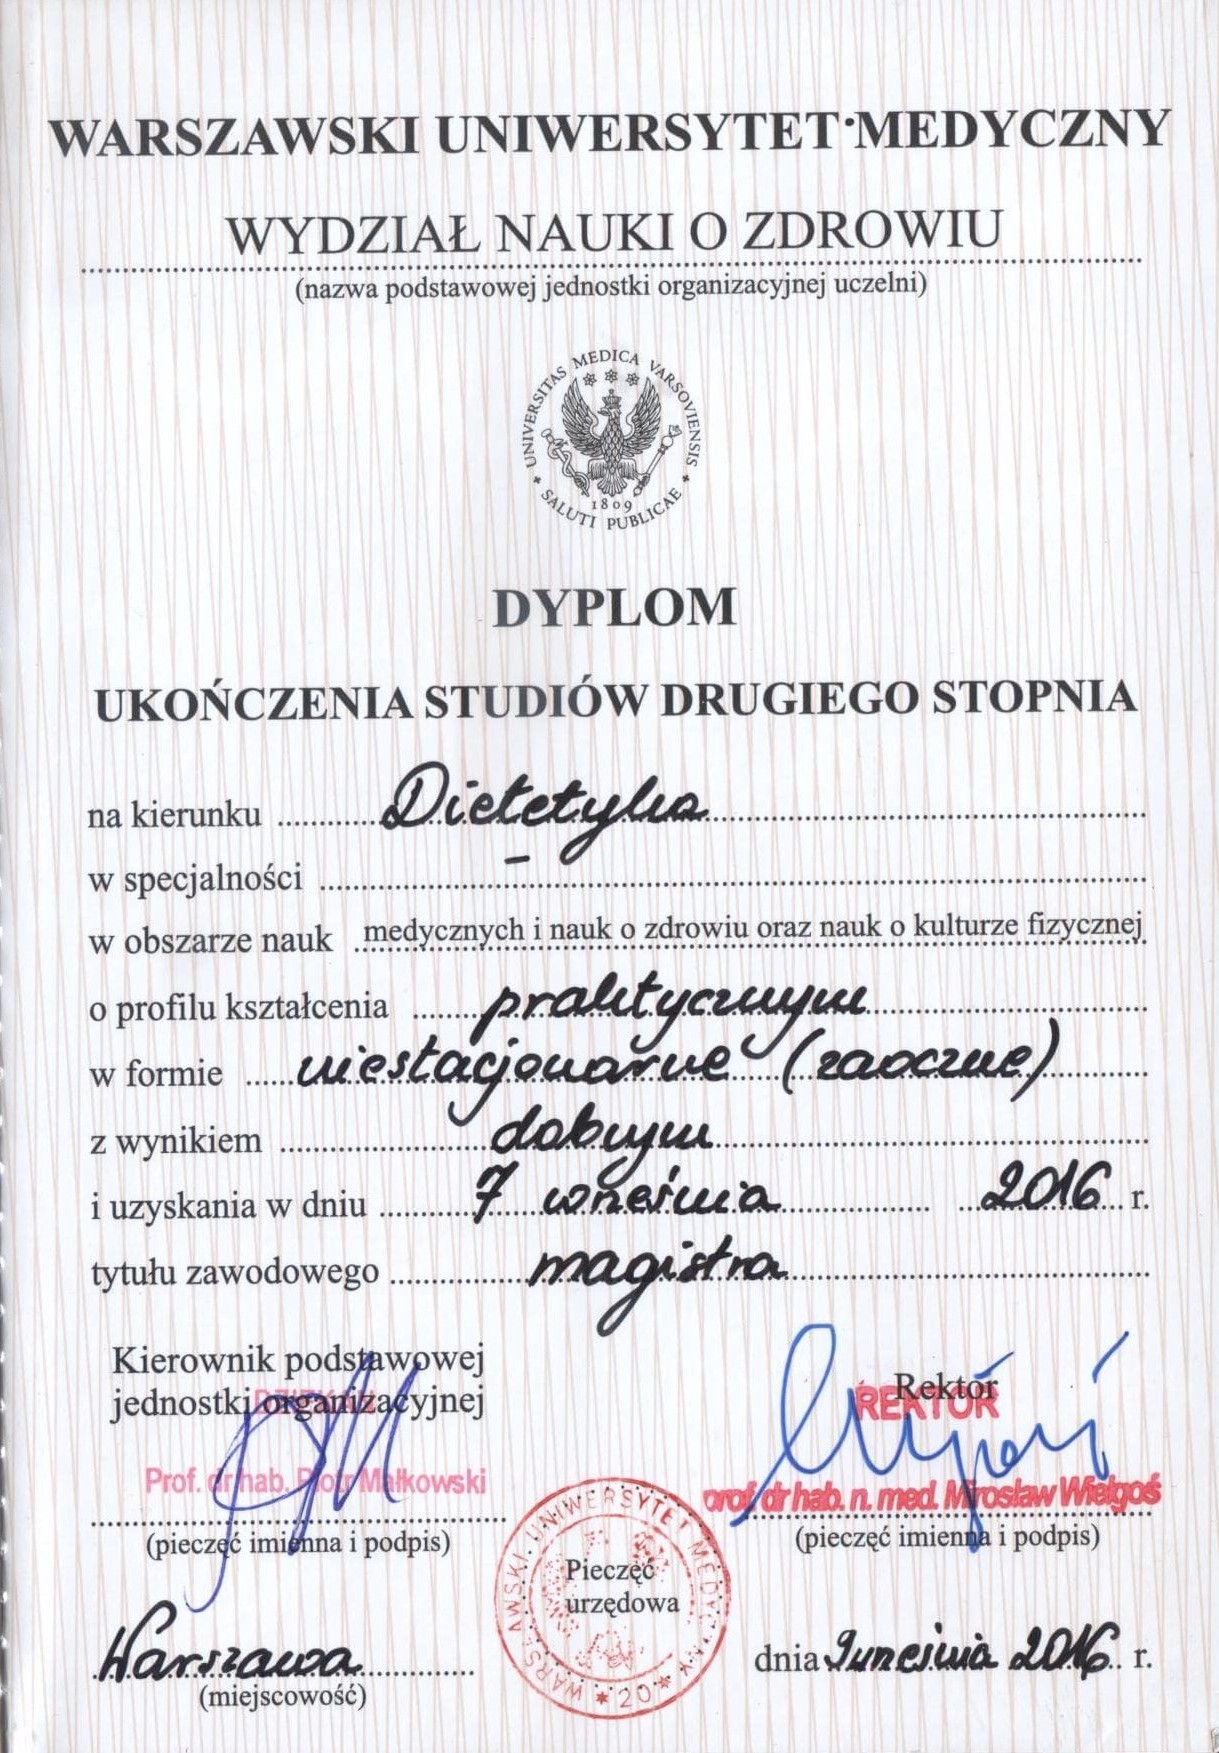 WARSZAWSKI UNIWERSYTET MEDYCZNY
WYDZIAŁ NAUKI O ZDROWIU
(nazwa podstawowej jednostki organizacyjnej uczelni)
UNIVERSITAS MEDICA VARSOVIENSIS
1809
SALUTI PUBLICAE
DYPLOM
UKOŃCZENIA STUDIÓW DRUGIEGO STOPNIA
na kierunku Dietetyka
w specjalności –
w obszarze nauk medycznych i nauk o zdrowiu oraz nauk o kulturze fizycznej
o profilu kształcenia praktycznym
w formie niestacjonarne (zaoczne)
z wynikiem dobrym
i uzyskania w dniu 7 września 2016 r.
tytułu zawodowego magistra
Kierownik podstawowej
jednostki organizacyjnej
DZIEKAN
Prof. dr hab. Piotr Małkowski
(pieczęć imienna i podpis)
Rektor
REKTOR
prof. dr hab. n. med. Mirosław Wielgoś
(pieczęć imienna i podpis)
WARSZAWSKI UNIWERSYTET MEDYCZNY
* 20 *
Pieczęć
urzędowa
Warszawa
(miejscowość)
dnia 9 września 2016 r.